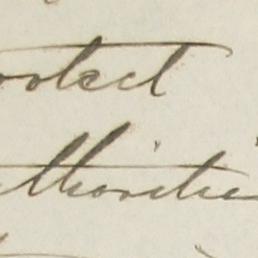 rotect
uthoritie